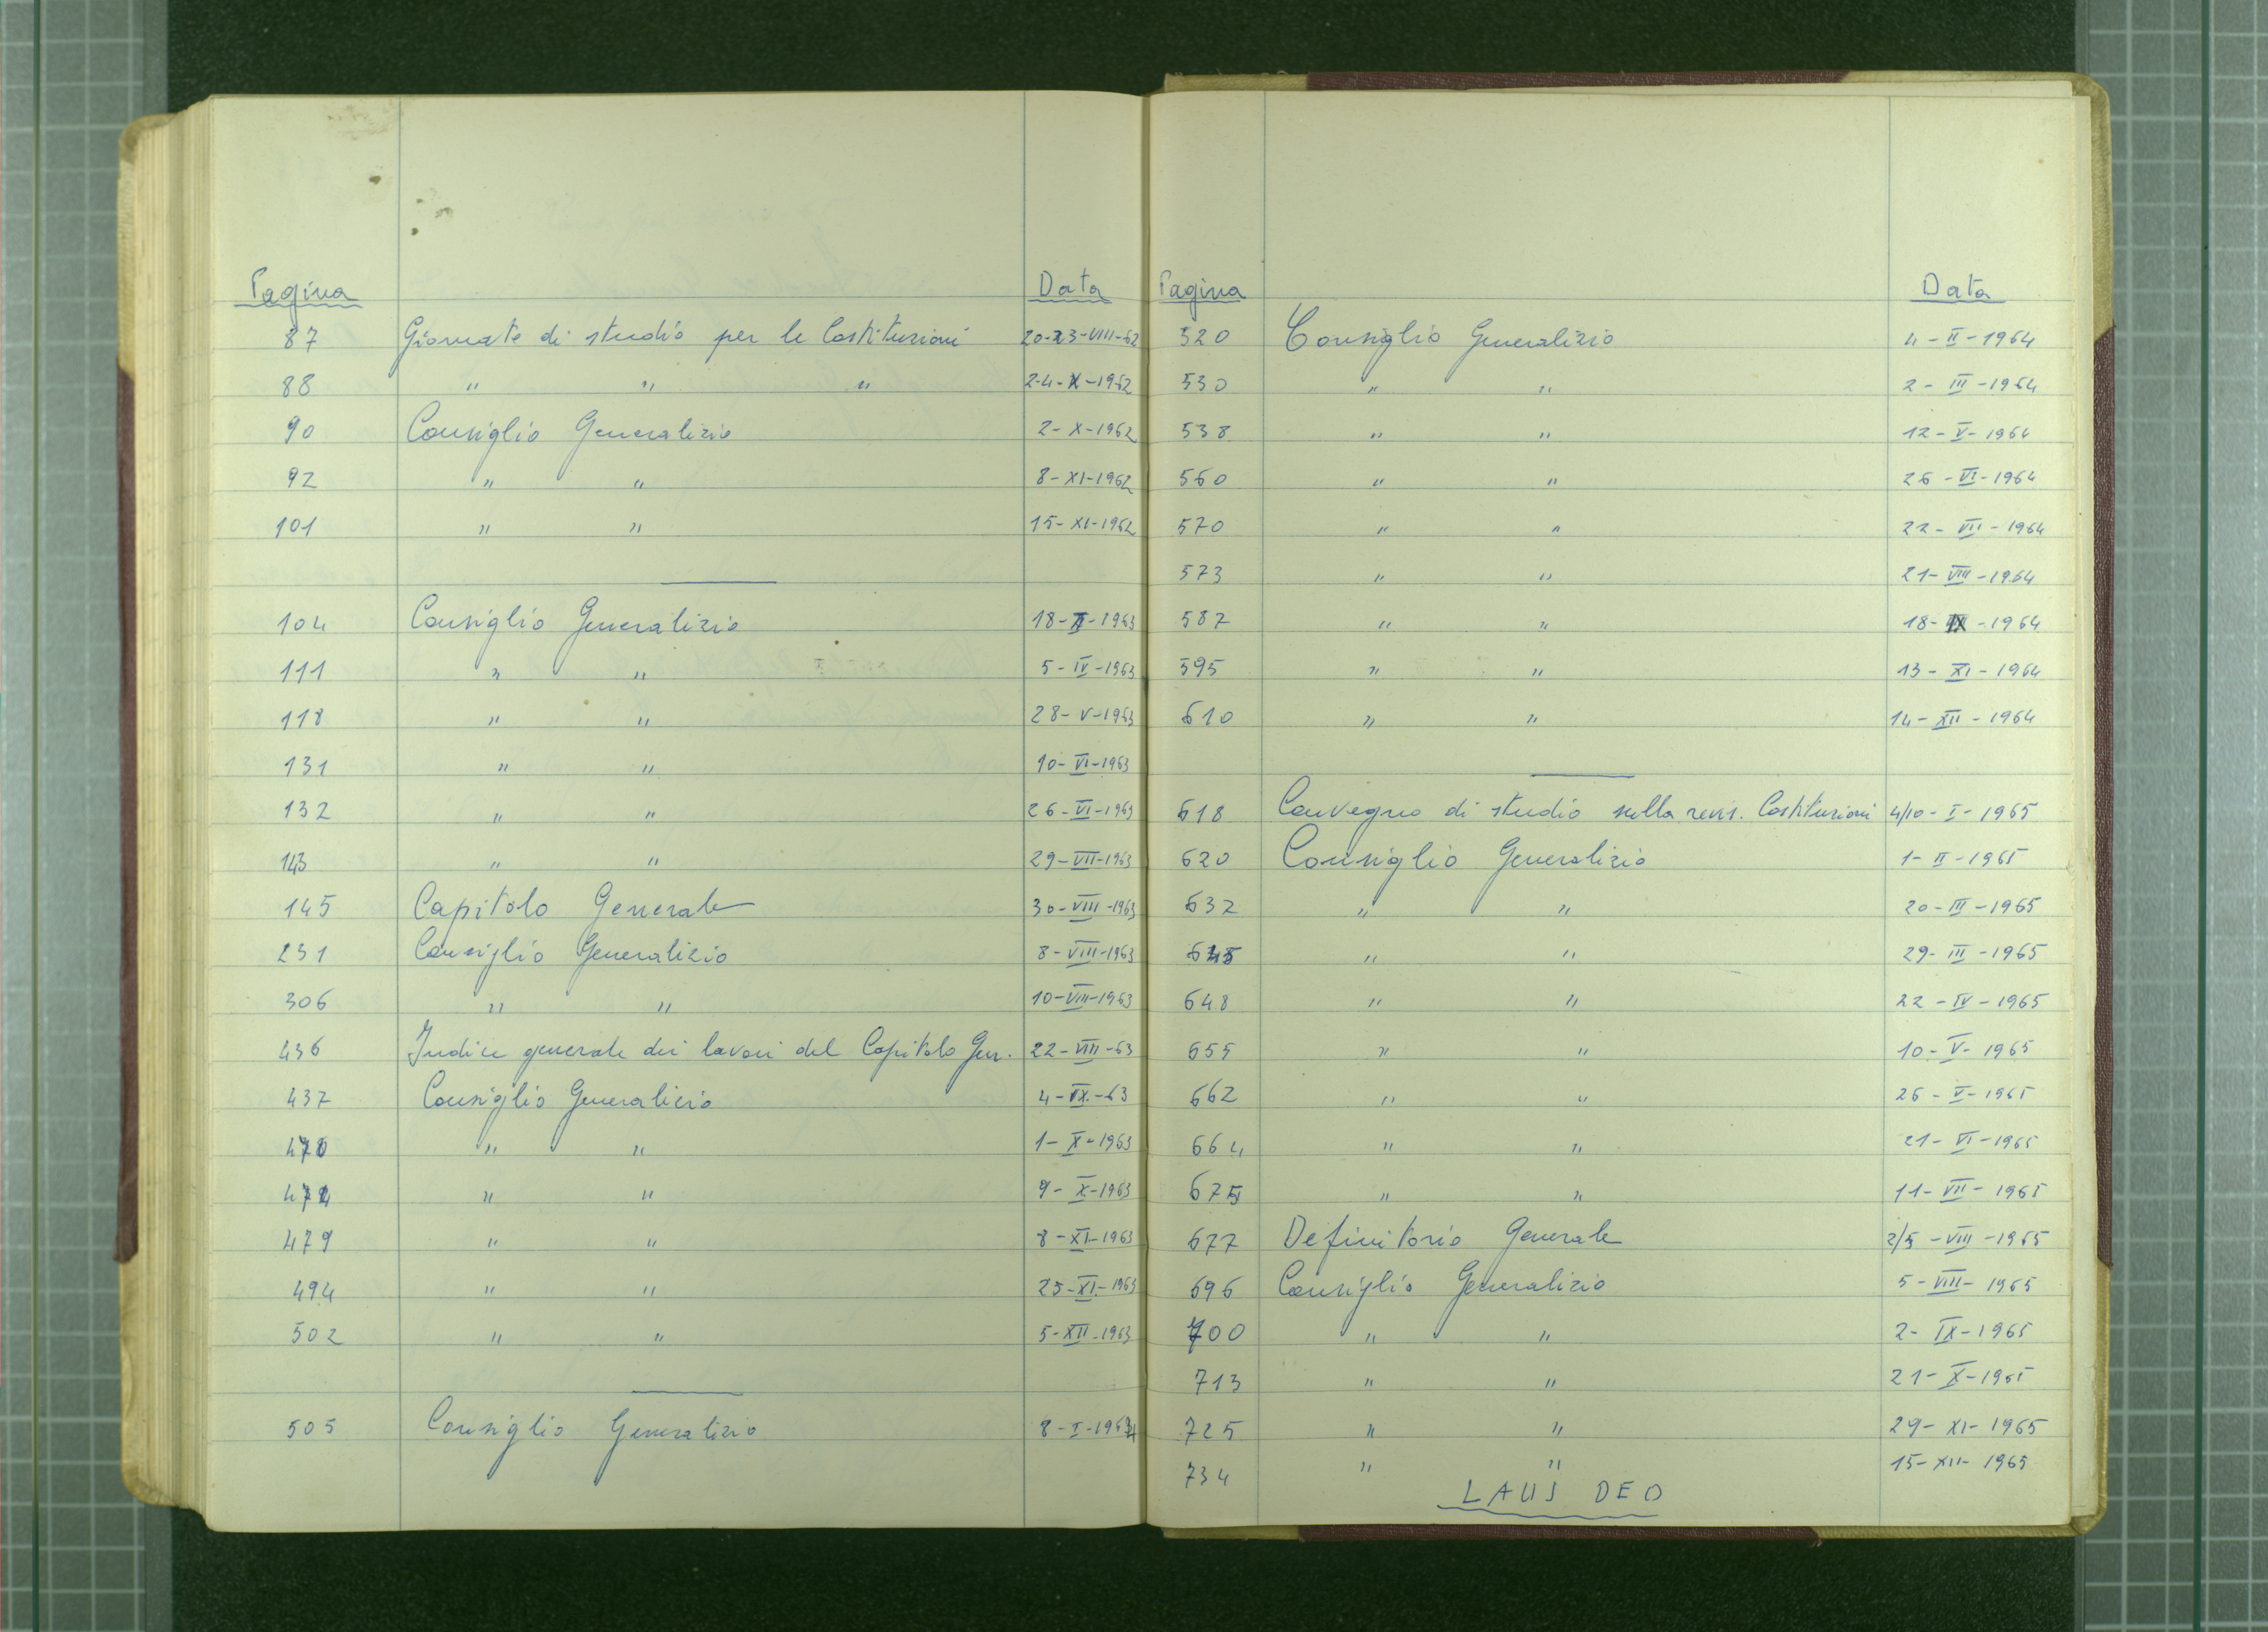 Pagina Data
87 Giornate di studio per le Costituzioni 20-23-VIII-62
88 " " " 2-4-X-1962
90 Consiglio Generalizio 2-X-1962
92 " " 8-XI-1962
101 " " 15-XI-1962
104 Consiglio Generalizio 18-II-1963
111 " " 5-IV-1963
118 " " 28-V-1963
131 " " 10-VI-1963
132 " " 26-VI-1963
143 " " 29-VII-1963
145 Capitolo Generale 30-VIII-1963
231 Consiglio Generalizio 8-VIII-1963
306 " " 10-VIII-1963
436 Indice generale dei lavori del Capitolo Gen. 22-VIII-63
437 Consiglio Generalizio 4-IX-63
470 " " 1-X-1963
" " 9-X-1963
479 " " 8-XI-1963
494 " " 25-XI-1963
502 " " 5-XII-1963
505 Consiglio Generalizio 8-I-1964
Pagina Data
520 Consiglio Generalizio 4-II-1964
530 " " 2-III-1964
538 " " 12-V-1964
560 " " 26-VI-1964
570 " " 22-VII-1964
573 " " 21-VIII-1964
587 " " 18-IX-1964
595 " " 13-XI-1964
610 " " 14-XII-1964
618 Convegno di studio sulla revis. Costituzioni 4/10-I-1965
620 Consiglio Generalizio 1-II-1965
632 " " 20-III-1965
645 " " 29-III-1965
648 " " 22-IV-1965
655 " " 10-V-1965
662 " " 26-V-1965
664 " " 21-VI-1965
675 " " 11-VII-1965
677 Definitorio Generale 2/5-VIII-1965
696 Consiglio Generalizio 5-VIII-1965
700 " " 2-IX-1965
713 " " 21-X-1965
725 " " 29-XI-1965
734 " " 15-XII-1965
LAUS DEO